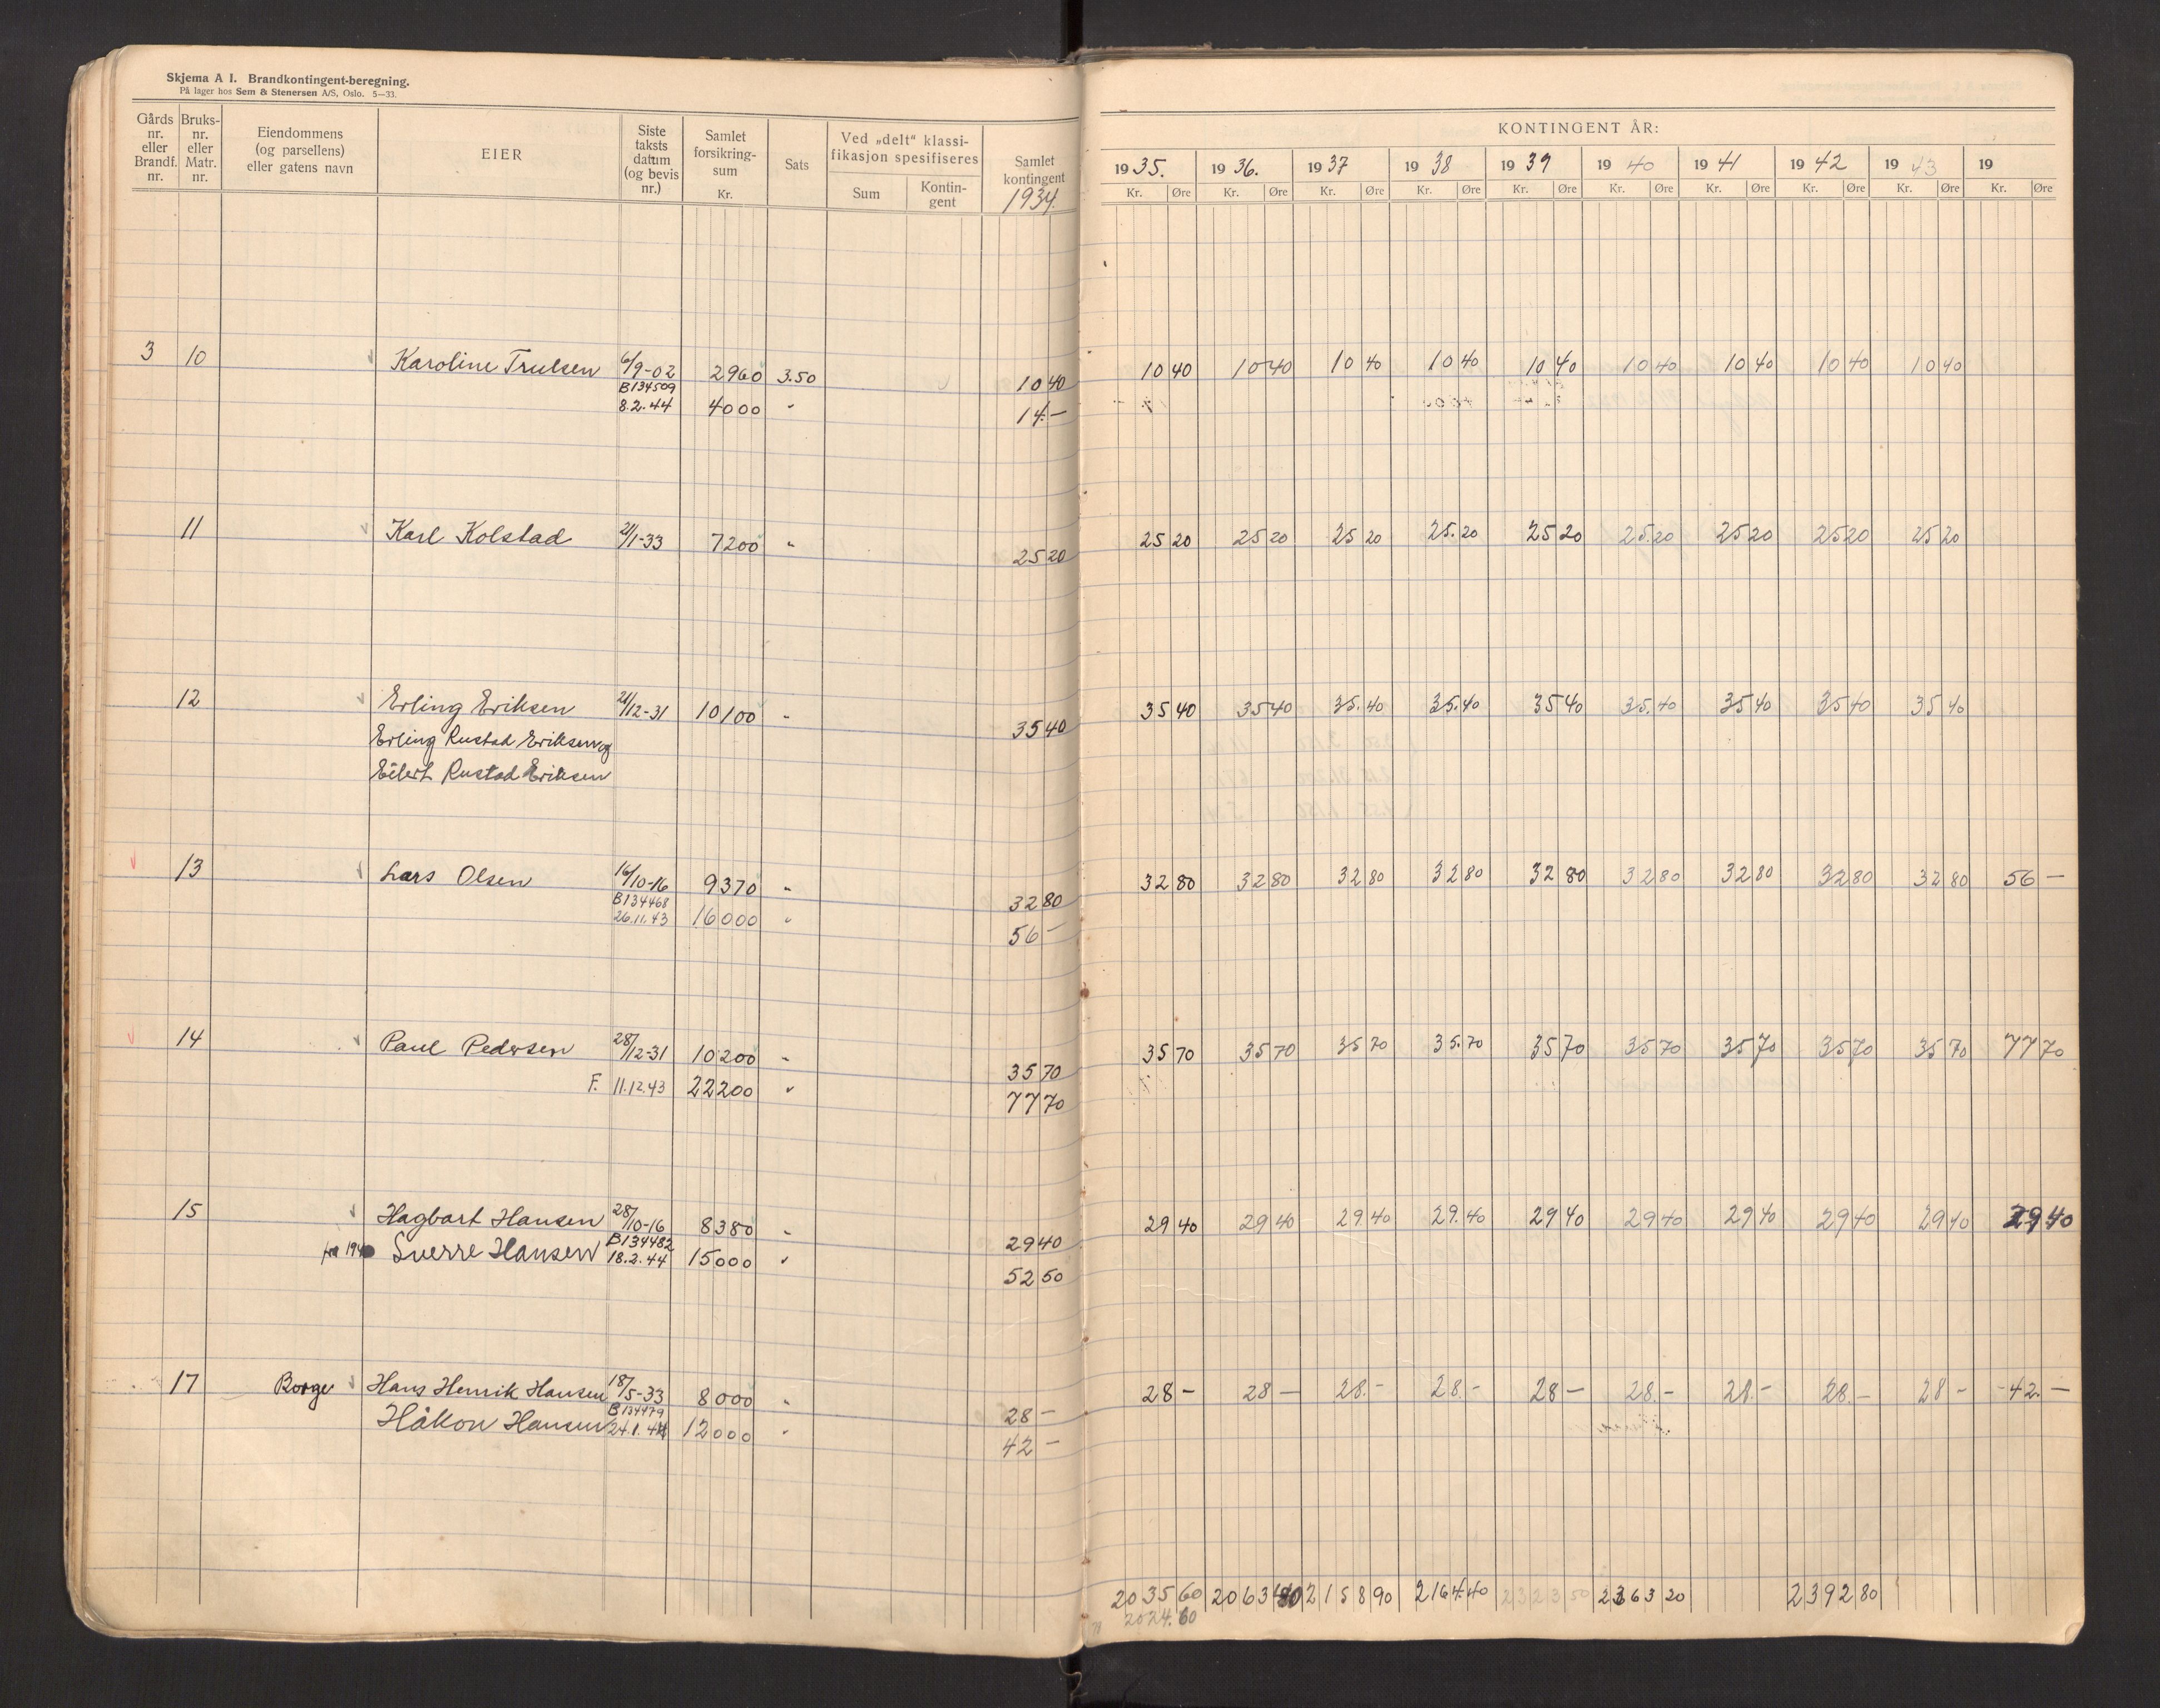 Skjema A I. Brandkontingent-beregning.
På lager hos Sem & Stenersen A/S, Oslo. 5—33.
Gårds nr. eller Brandf. nr.
Bruks- nr. eller Matr. nr.
Eiendommens (og parsellens) eller gatens navn
EIER
Siste taksts datum (og bevis nr.)
Samlet forsikring- sum Kr.
Sats
Ved „delt“ klassi- fikasjon spesifiseres
Sum
Kontin- gent
Samlet kontingent 1934.
KONTINGENT ÅR:
1935. 1936. 1937 1938 1939 1940 1941 1942 1943 19
Kr. Øre Kr. Øre Kr. Øre Kr. Øre Kr. Øre Kr. Øre Kr. Øre Kr. Øre Kr. Øre Kr. Øre
3 10 Karoline Trulsen 6/9-02 2960 3.50 10 40 10 40 10 40 10 40 10 40 10 40 10 40 10 40 10 40 10 40
B134509
8.2.44 4000 " 14.—
11 Karl Kolstad 21/1-33 7200 " 25 20 25 20 25 20 25 20 25.20 25 20 25.20 25 20 25 20 25 20
12 Erling Eriksen 21/12-31 10100 " 35 40 35 40 35 40 35.40 35.40 35 40 35.40 35 40 35 40 35 40
Erling Rustad Eriksen og
Eilert Rustad Eriksen
13 Lars Olsen 16/10-16 9370 " 32 80 32 80 32 80 32 80 32 80 32 80 32 80 32 80 32 80 32 80 56 —
B134468
26.11.43 16000 " 56 —
14 Paul Pedersen 28/12-31 10200 " 35 70 35 70 35 70 35 70 35.70 35 70 35 70 35 70 35 70 35 70 77 70
F. 11.12.43 22200 " 77 70
15 Hagbart Hansen 28/10-16 8380 " 29 40 29 40 29 40 29.40 29.40 29 40 29 40 29 40 29 40 29 40 29 40
B134482
Sverre Hansen 18.2.44 15000 " 52 50
17 Borge Hans Henrik Hansen 18/5-33 8000 " 28 — 28 — 28 — 28.— 28.— 28 — 28.— 28.— 28.— 28 — 42.—
B134479
Håkon Hansen 24.1.44 12000 " 42 —
2035 60 2063 40 2158 90 2164.40 2323 50 2363 20 2392 80
2024.60